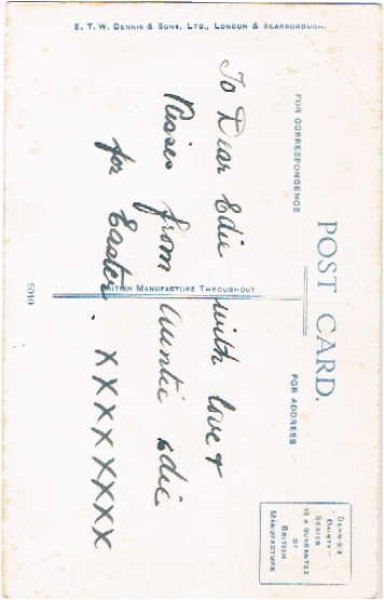 POST CARD.
FOR CORRESPONDENCE
FOR ADDRESS
DENNIS'S
"DAINTY"
SERIES
IS A GUARANTEE
OF
BRITISH
MANUFACTURE
To Dear Edie with love &
Kisses from Auntie Edie
for Easter. XXXXXXXX
BRITISH MANUFACTURE THROUGHOUT
E. T. W. DENNIS & SONS, LTD., LONDON & SCARBOROUGH.
5040